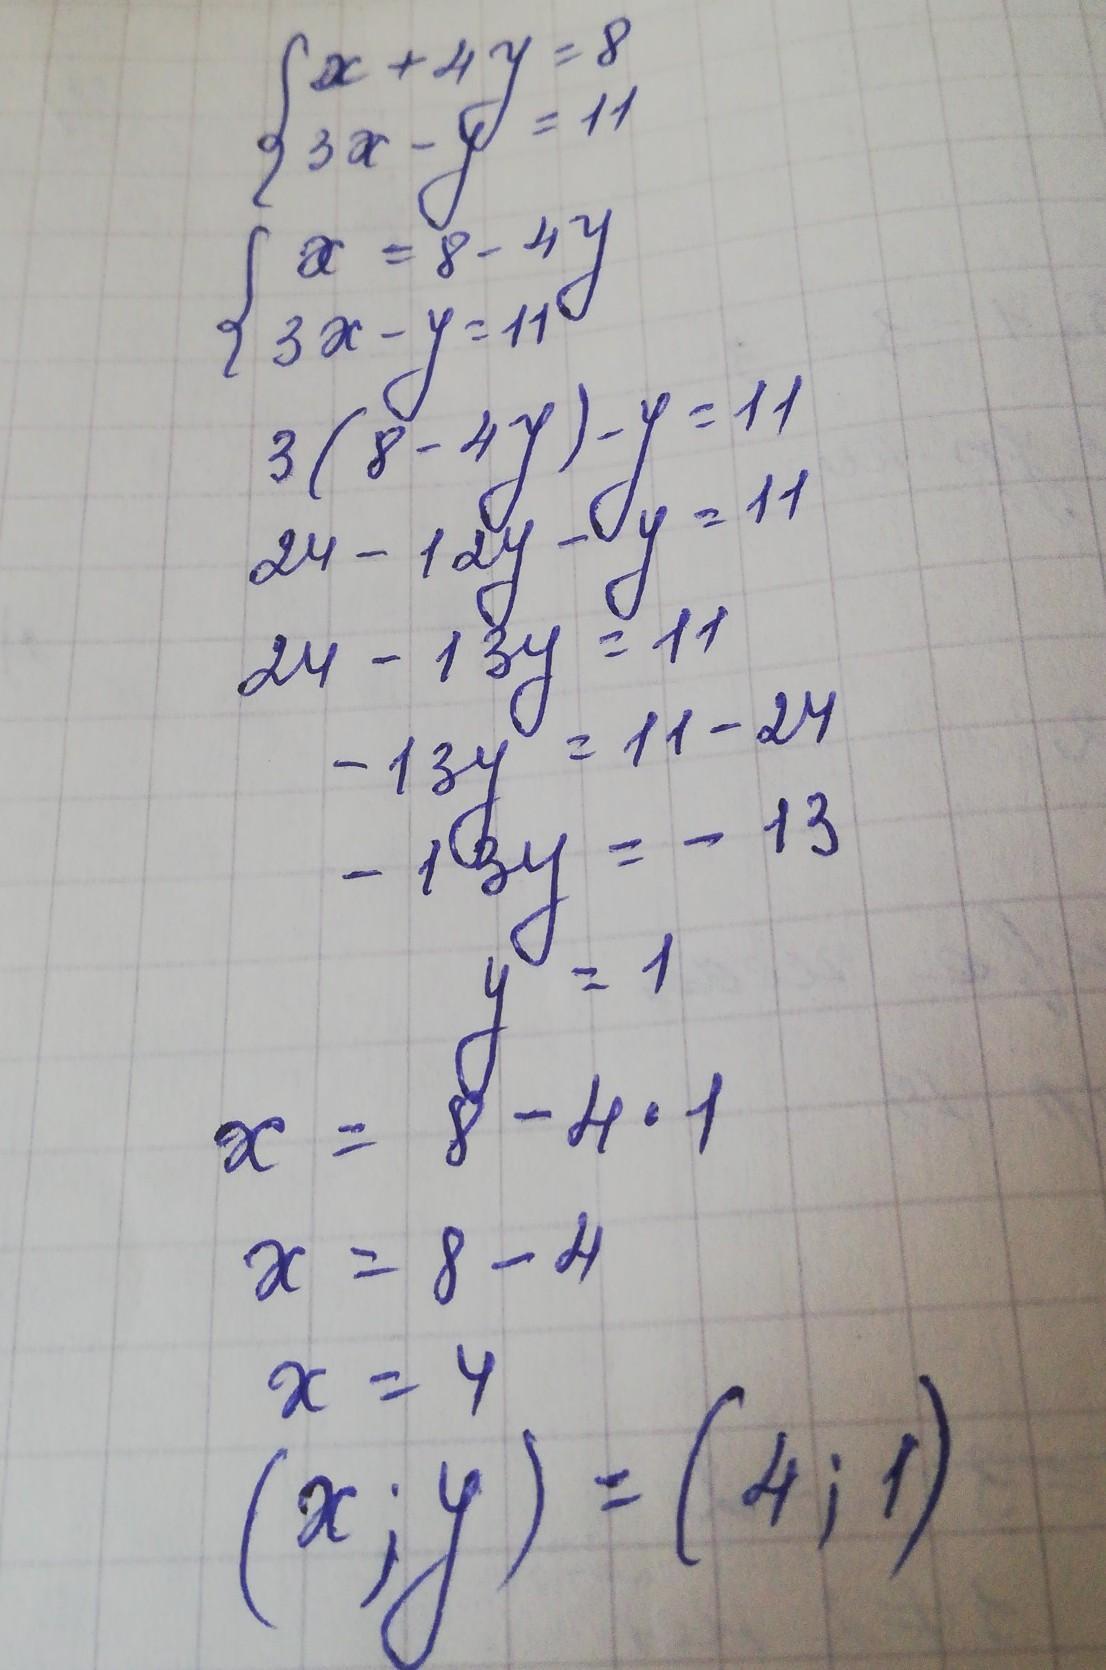 {x + 4y = 8
3x - y = 11
{x = 8 - 4y
3x - y = 11
3(8 - 4y) - y = 11
24 - 12y - y = 11
24 - 13y = 11
- 13y = 11 - 24
- 13y = - 13
y = 1
x = 8 - 4 · 1
x = 8 - 4
x = 4
(x; y) = (4; 1)